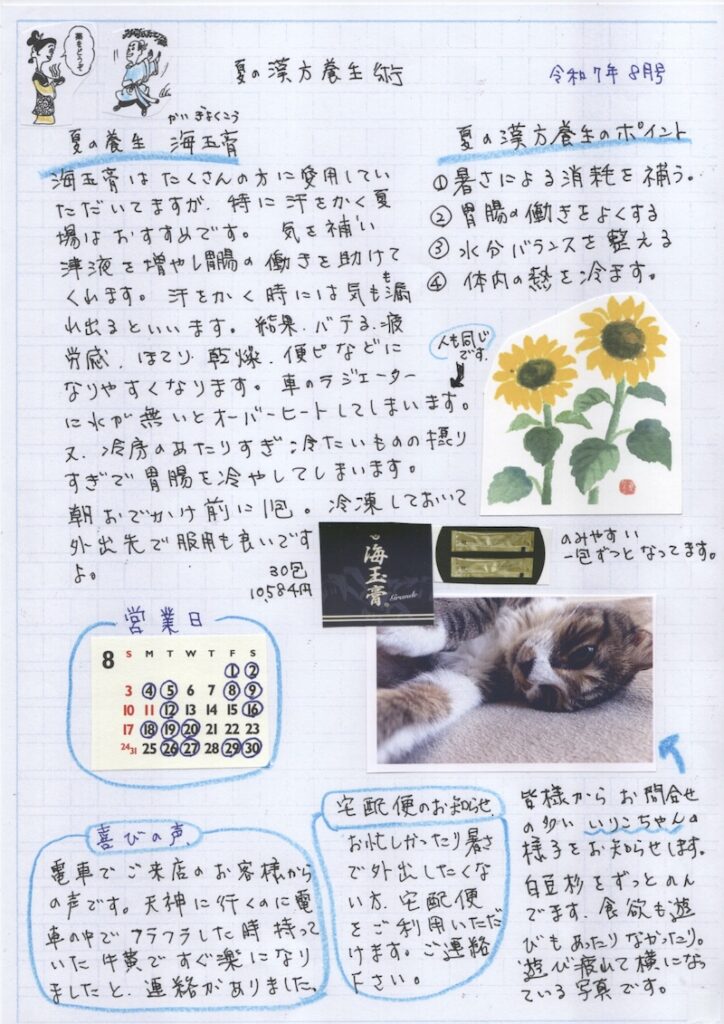 薬をどうぞ
夏の漢方養生術
令和7年8月号
夏の養生 海玉膏
かいぎょくこう
海玉膏はたくさんの方に愛用してい
ただいてますが、特に汗をかく夏
場はおすすめです。気を補い
津液を増やし胃腸の働きを助けて
くれます。汗をかく時には気も漏
も
れ出るといいます。結果、バテる、疲
労感、ほてり、乾燥、便ピなどに
なりやすくなります。車のラジエーター
に水が無いとオーバーヒートしてしまいます。
又、冷房のあたりすぎ、冷たいものの摂り
すぎで胃腸を冷やしてしまいます。
朝おでかけ前に1包。冷凍しておいて
外出先で服用も良いです
よ。
30包
10,584円
夏の漢方養生のポイント
①暑さによる消耗を補う。
②胃腸の働きをよくする
③水分バランスを整える
④体内の熱を冷ます。
人も同じ
です。
海玉膏
Grande
のみやすい
一包ずつとなってます。
営業日
8 S M T W T F S
1 2
3 4 5 6 7 8 9
10 11 12 13 14 15 16
17 18 19 20 21 22 23
24/31 25 26 27 28 29 30
喜びの声
電車でご来店のお客様から
の声です。天神に行くのに電
車の中でフラフラした時持って
いた牛黄ですぐ楽になり
ましたと、連絡がありました。
宅配便のお知らせ
お忙しかったり暑さ
で外出したくな
い方、宅配便
をご利用いただ
けます。ご連絡
下さい。
皆様からお問合せ
の多いいりこちゃんの
様子をお知らせします。
白豆杉をずっとのん
でます。食欲も遊
びもあったりなかったり。
遊び疲れて横になっ
ている写真です。